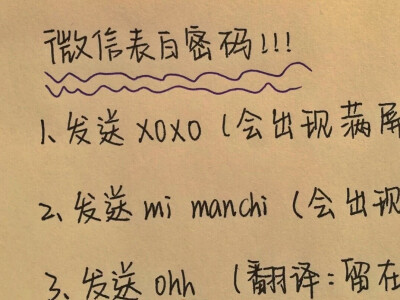 微信表白密码!!!
1、发送 XOXO (会出现满屏
2、发送 mi manchi (会出现
3、发送 ohh (翻译:留在